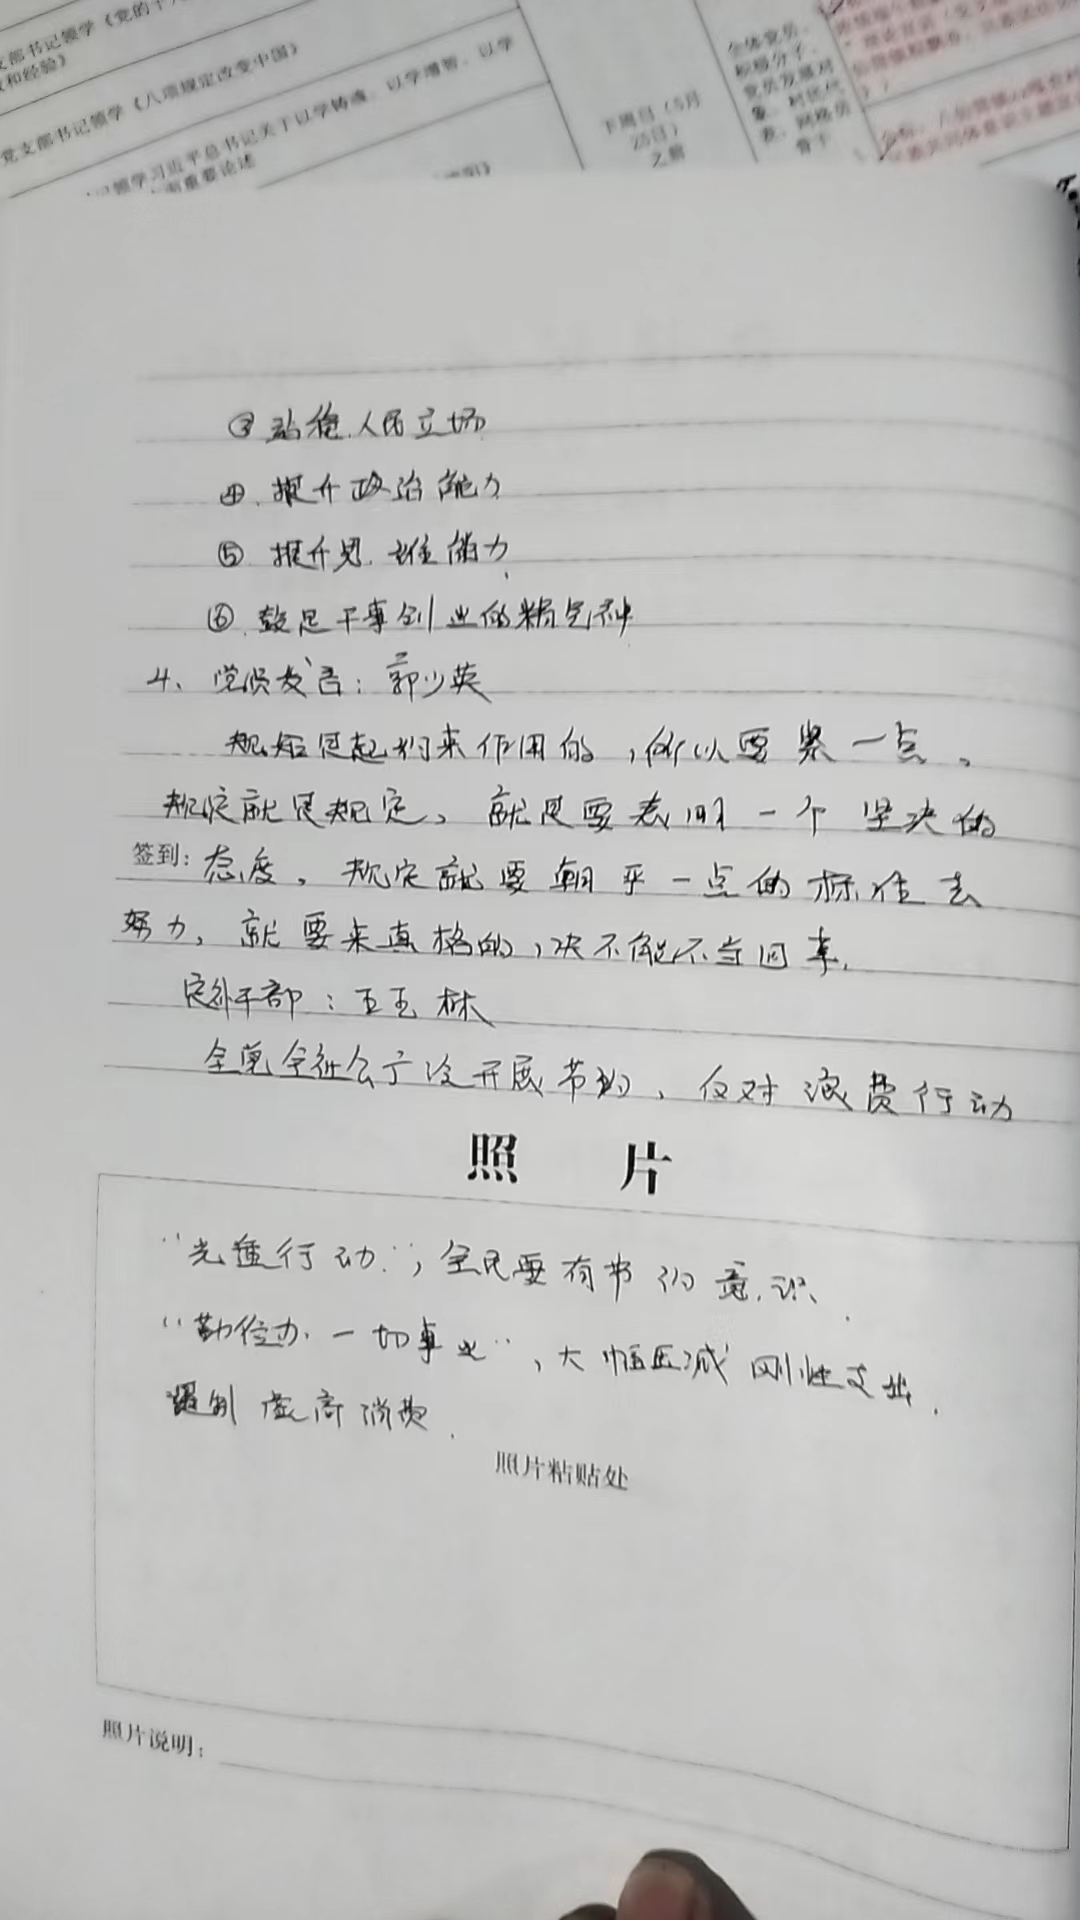 支部书记领学《党的十
和经验》
党支部书记领学《八项规定改变中国》
领学习近平总书记关于以学铸魂、以学增智、以学
重要论述
下周日（5月
25日）
之前
全体党员、
积极分子、
党员发展对
象、村民代
表、网格员
骨干
③ 站稳人民立场
④ 提升政治能力
⑤ 提升思维能力
⑥ 鼓足干事创业的精气神
4、党员发言：郭少英
规矩是起约束作用的，所以要紧一点。
规定就是规定，就是要表明一个坚决的
签到：
态度，规定就要朝乎一点的标准去
努力，就要来真格的，决不能不当回事.
定补干部：王玉林
全党全社会广泛开展节约、反对浪费行动
照 片
"光盘行动"，全民要有节约意识.
"勤俭办一切事业"，大幅压减刚性支出.
遏制虚高消费.
照片粘贴处
照片说明：